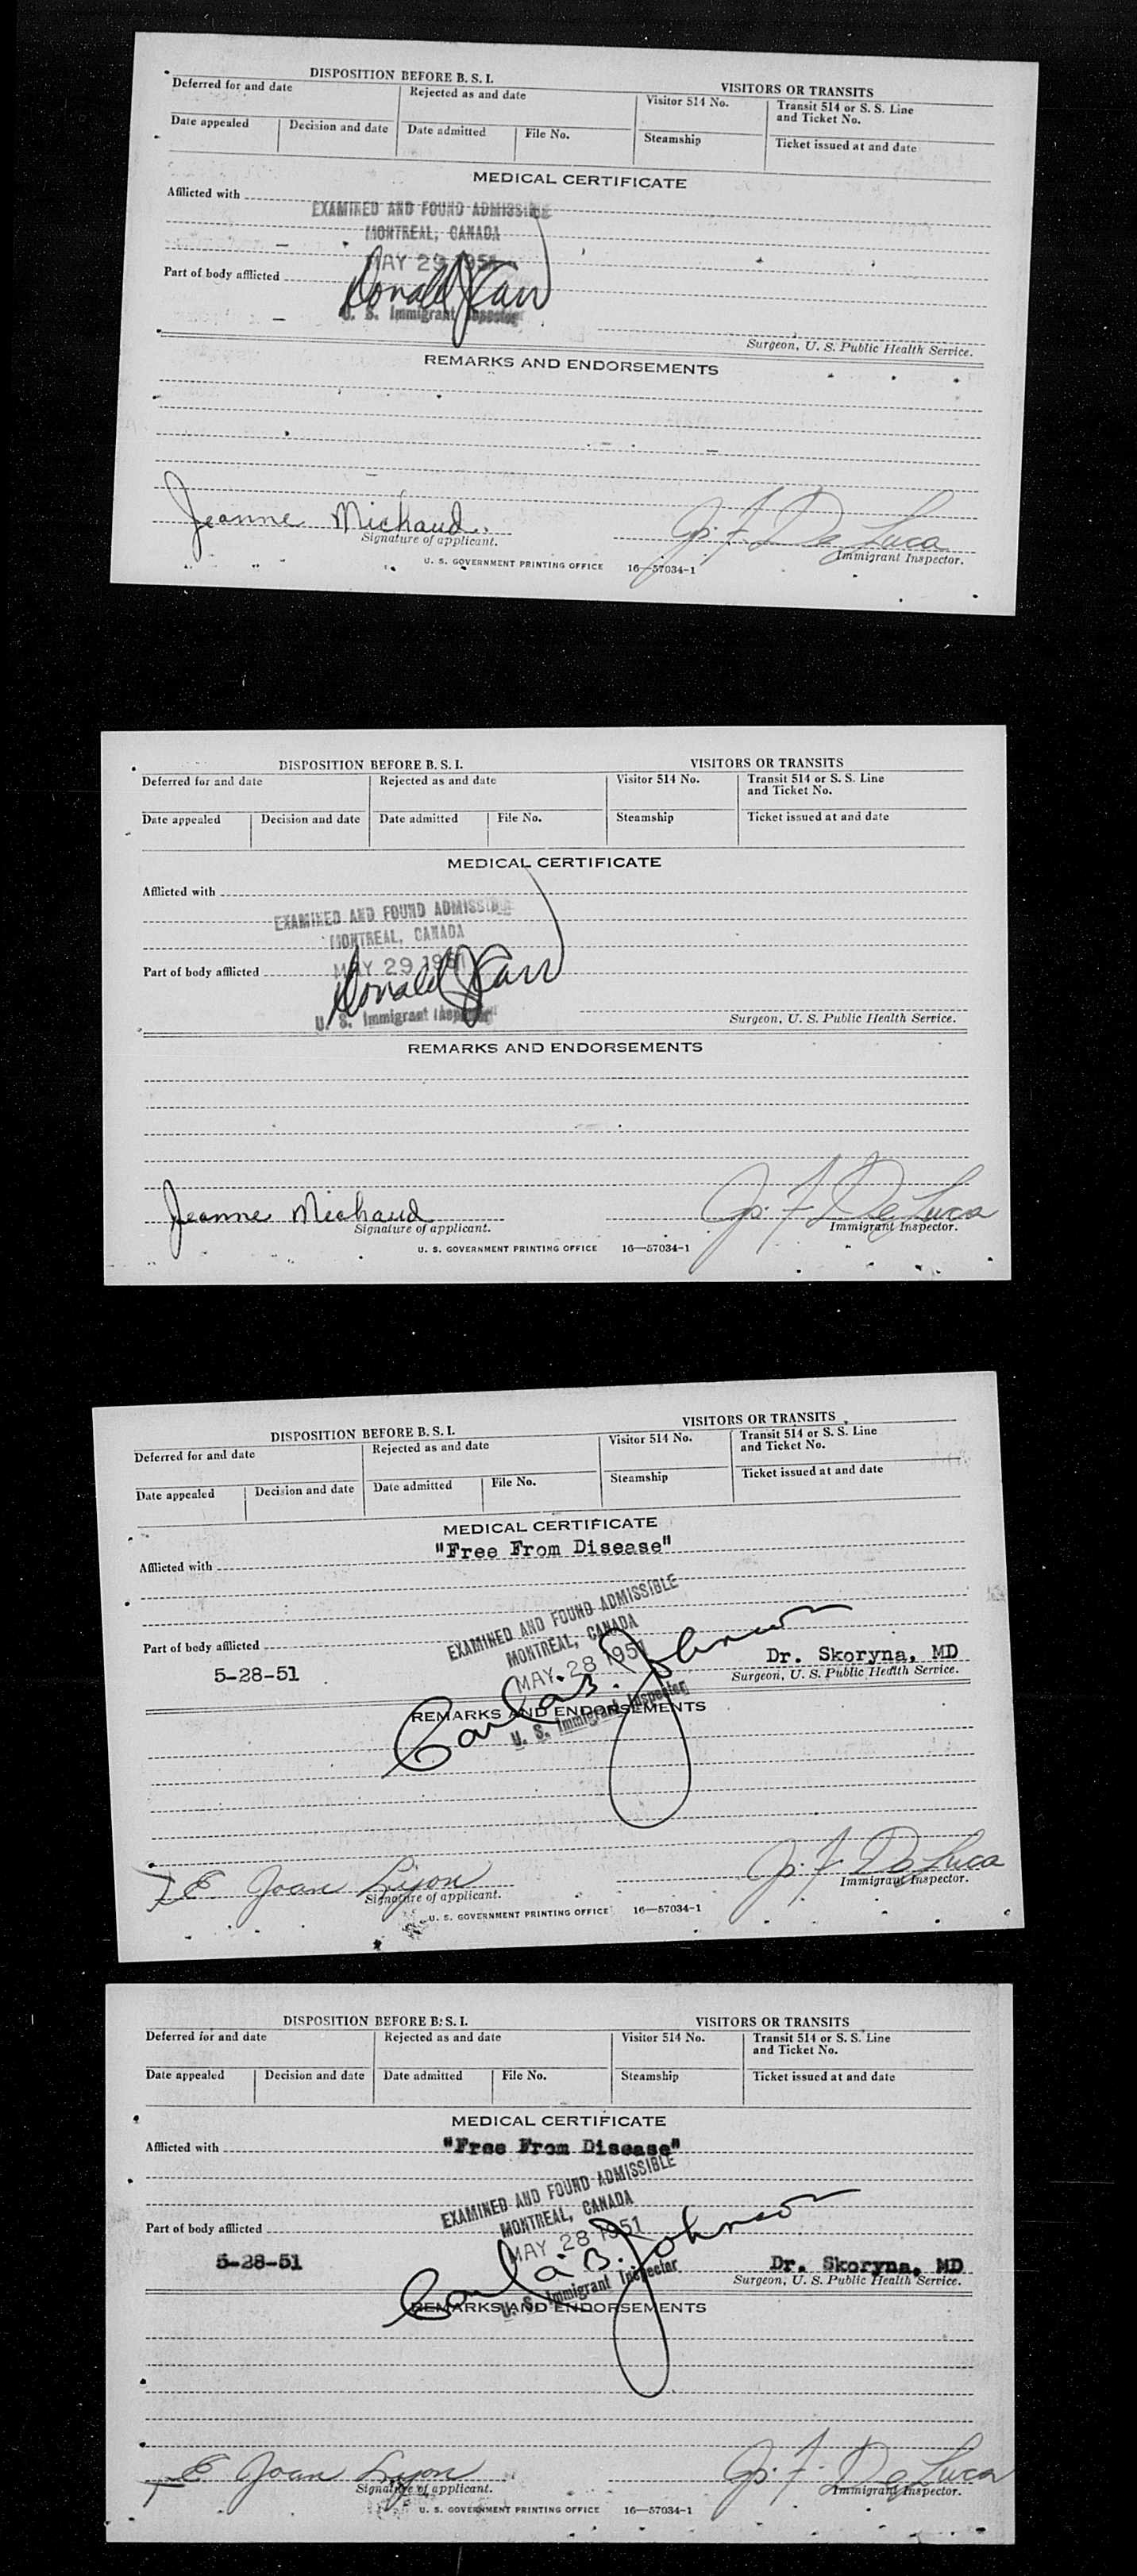 DISPOSITION BEFORE B. S. I.
VISITORS OR TRANSITS
Deferred for and date
Rejected as and date
Visitor 514 No.
Transit 514 or S. S. Line and Ticket No.
Date appealed
Decision and date
Date admitted
File No.
Steamship
Ticket issued at and date
MEDICAL CERTIFICATE
Afflicted with
EXAMINED AND FOUND ADMISSIBLE
MONTREAL, CANADA
MAY 29 1951
Part of body afflicted
Donald J Carr
U. S. Immigrant Inspector
Surgeon, U. S. Public Health Service.
REMARKS AND ENDORSEMENTS
Jeanne Michaud.
Signature of applicant.
Jos. F. De Luca
Immigrant Inspector.
U. S. GOVERNMENT PRINTING OFFICE 16—57034-1
DISPOSITION BEFORE B. S. I.
VISITORS OR TRANSITS
Deferred for and date
Rejected as and date
Visitor 514 No.
Transit 514 or S. S. Line and Ticket No.
Date appealed
Decision and date
Date admitted
File No.
Steamship
Ticket issued at and date
MEDICAL CERTIFICATE
Afflicted with
EXAMINED AND FOUND ADMISSIBLE
MONTREAL, CANADA
MAY 29 1951
Part of body afflicted
Donald J Carr
U. S. Immigrant Inspector
Surgeon, U. S. Public Health Service.
REMARKS AND ENDORSEMENTS
Jeanne Michaud
Signature of applicant.
Jos. F. De Luca
Immigrant Inspector.
U. S. GOVERNMENT PRINTING OFFICE 16—57034-1
DISPOSITION BEFORE B. S. I.
VISITORS OR TRANSITS
Deferred for and date
Rejected as and date
Visitor 514 No.
Transit 514 or S. S. Line and Ticket No.
Date appealed
Decision and date
Date admitted
File No.
Steamship
Ticket issued at and date
MEDICAL CERTIFICATE
"Free From Disease"
Afflicted with
EXAMINED AND FOUND ADMISSIBLE
MONTREAL, CANADA
MAY 28 1951
Part of body afflicted
5-28-51
Carla B. Johnson
Dr. Skoryna, MD
Surgeon, U. S. Public Health Service.
U. S. Immigrant Inspector
REMARKS AND ENDORSEMENTS
E Joan Lyon
Signature of applicant.
Jos. F. De Luca
Immigrant Inspector.
U. S. GOVERNMENT PRINTING OFFICE 16—57034-1
DISPOSITION BEFORE B. S. I.
VISITORS OR TRANSITS
Deferred for and date
Rejected as and date
Visitor 514 No.
Transit 514 or S. S. Line and Ticket No.
Date appealed
Decision and date
Date admitted
File No.
Steamship
Ticket issued at and date
MEDICAL CERTIFICATE
Afflicted with
"Free From Disease"
EXAMINED AND FOUND ADMISSIBLE
MONTREAL, CANADA
MAY 28 1951
Part of body afflicted
5-28-51
Carla B. Johnson
Dr. Skoryna, MD
Surgeon, U. S. Public Health Service.
U. S. Immigrant Inspector
REMARKS AND ENDORSEMENTS
E Joan Lyon
Signature of applicant.
Jos. F. De Luca
Immigrant Inspector.
U. S. GOVERNMENT PRINTING OFFICE 16—57034-1